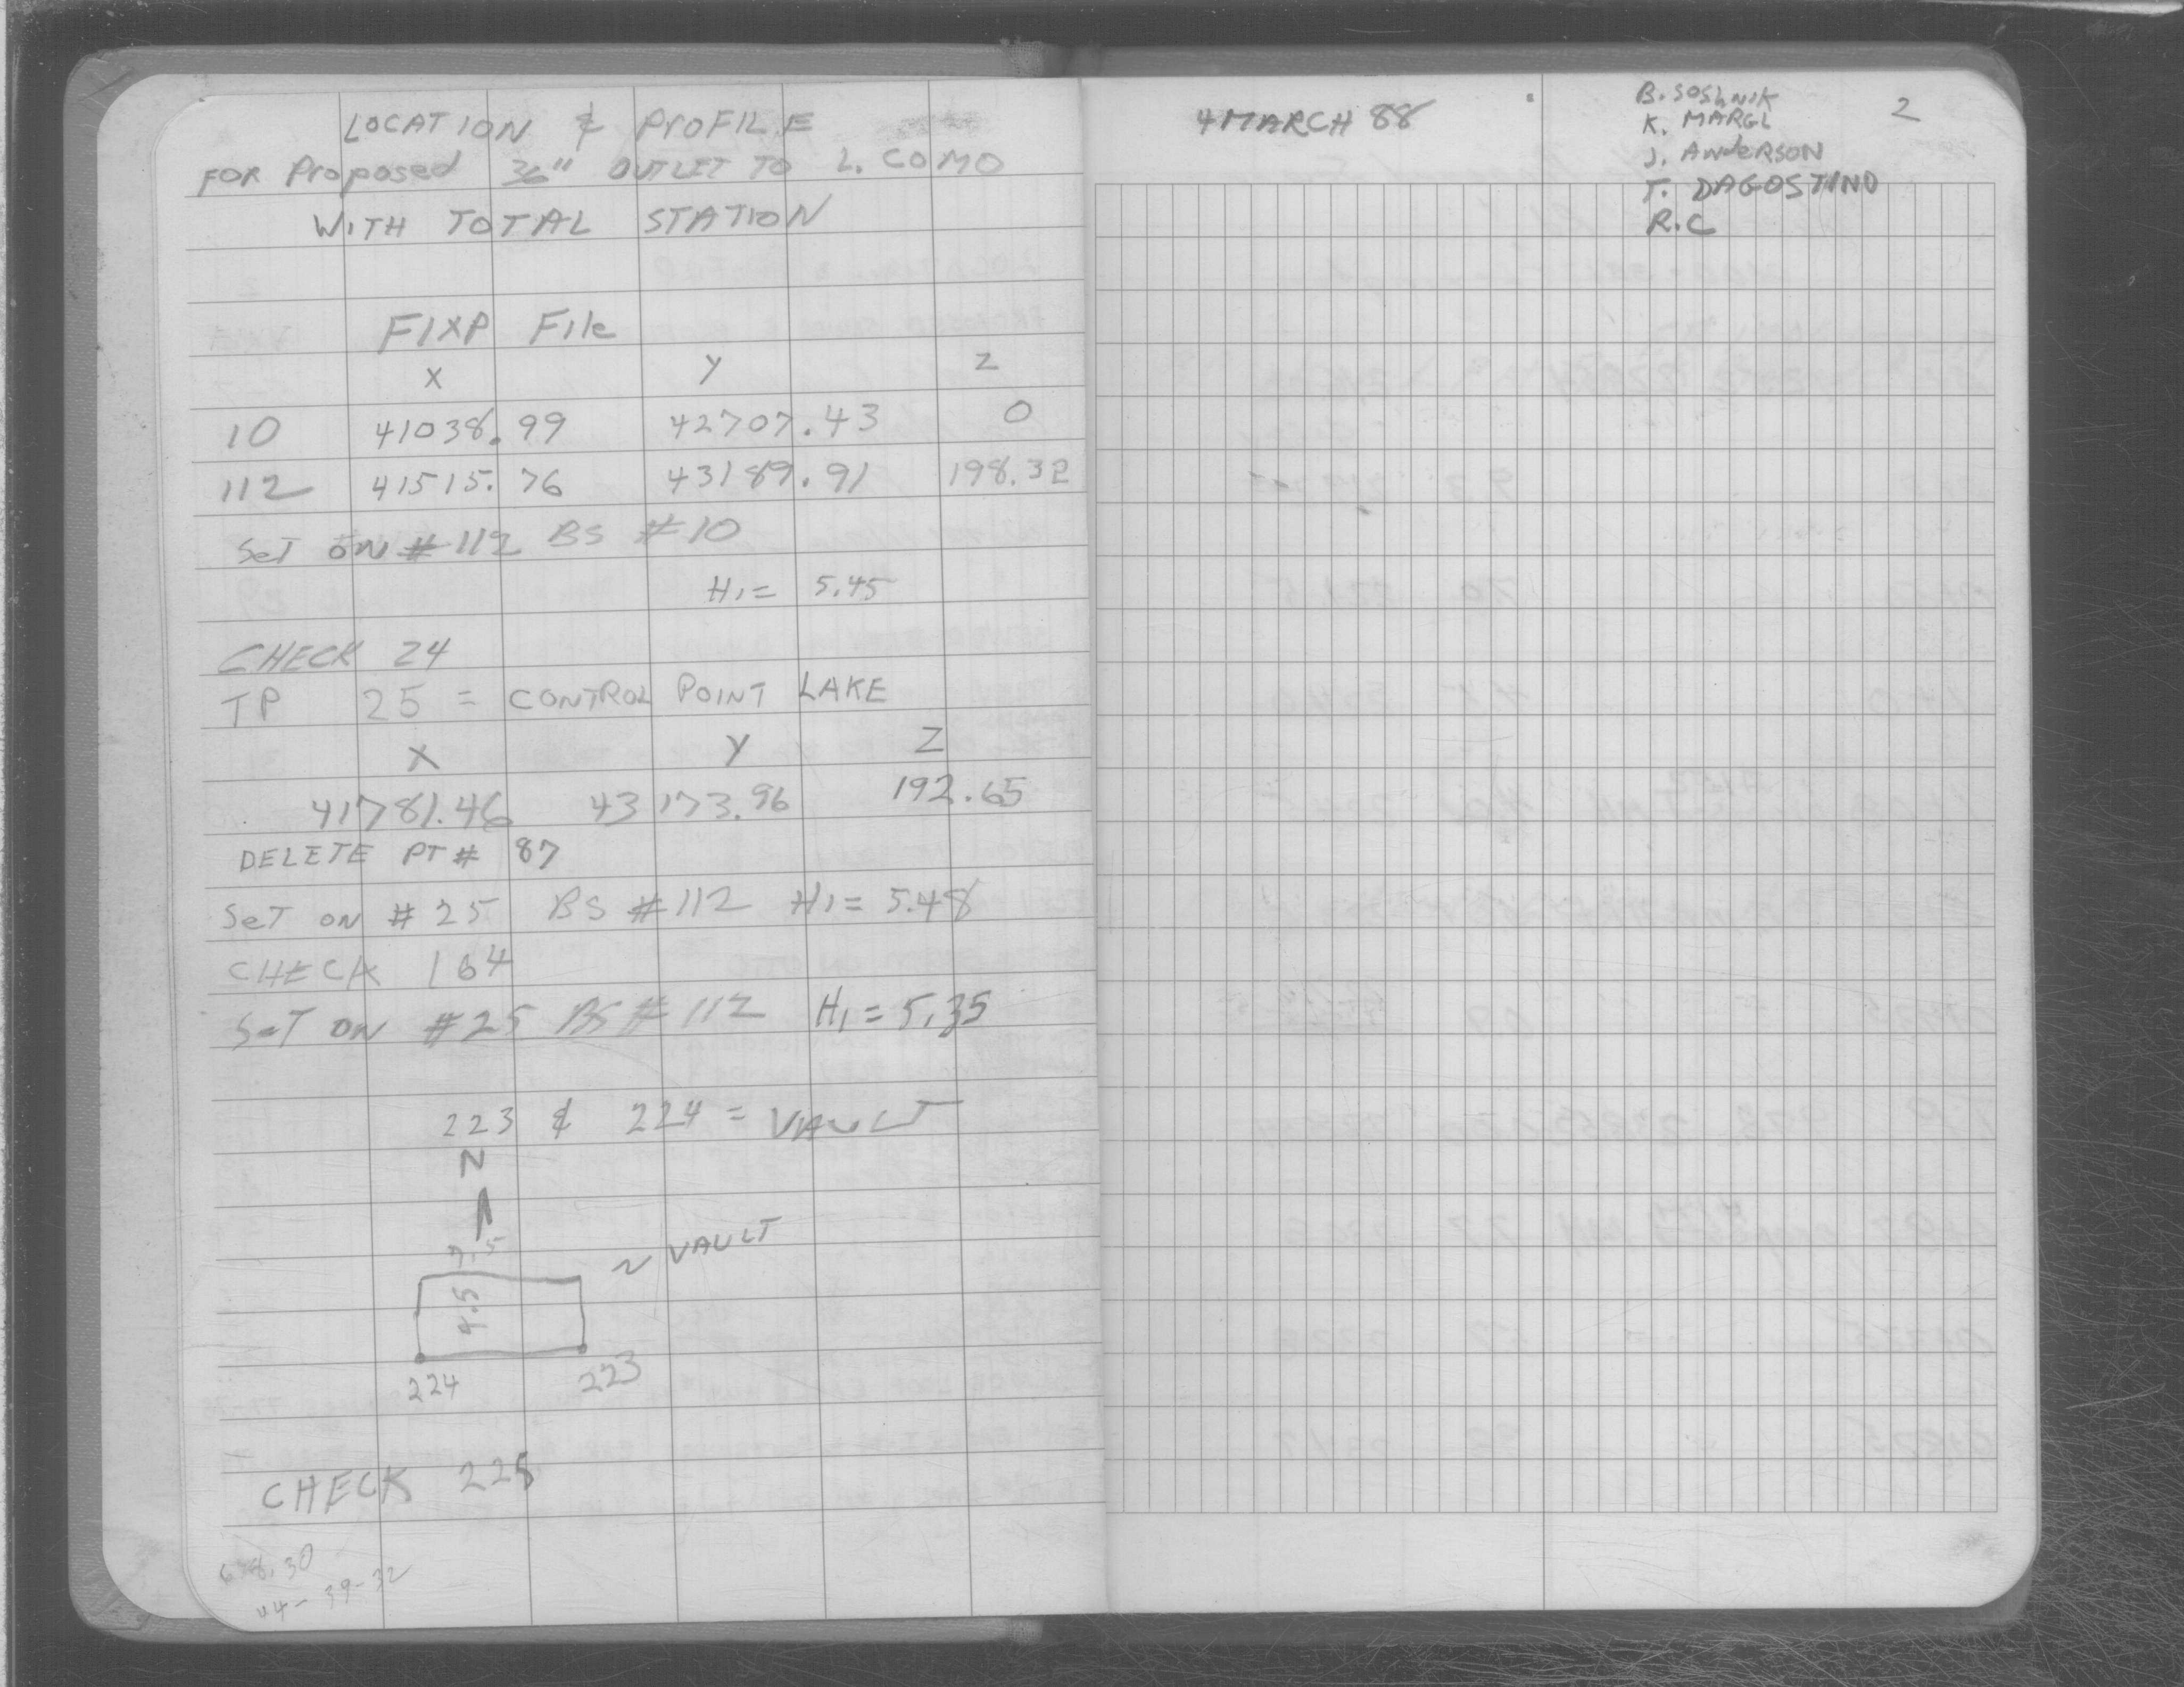 LOCATION & PROFILE
FOR Proposed 36" OUTLET TO L. COMO
WITH TOTAL STATION
FIXP File
X Y Z
10 41038.99 42707.43 0
112 41515.76 43189.91 198.32
SeT ON # 112 BS #10
HI = 5.45
CHECK 24
TP 25 = CONTROL POINT LAKE
X Y Z
41781.46 43173.96 192.65
DELETE PT # 87
SeT ON # 25 BS #112 HI = 5.48
CHECK 164
SeT ON #25 BS # 112 HI = 5.35
223 & 224 = VAULT
N
7.5
~ VAULT
4.5
224 223
CHECK 228
44-39-32
4 MARCH 88
B. SOSHNIK
K. MARGL
J. ANdeRSON
T. DAGOSTINO
R.C
2